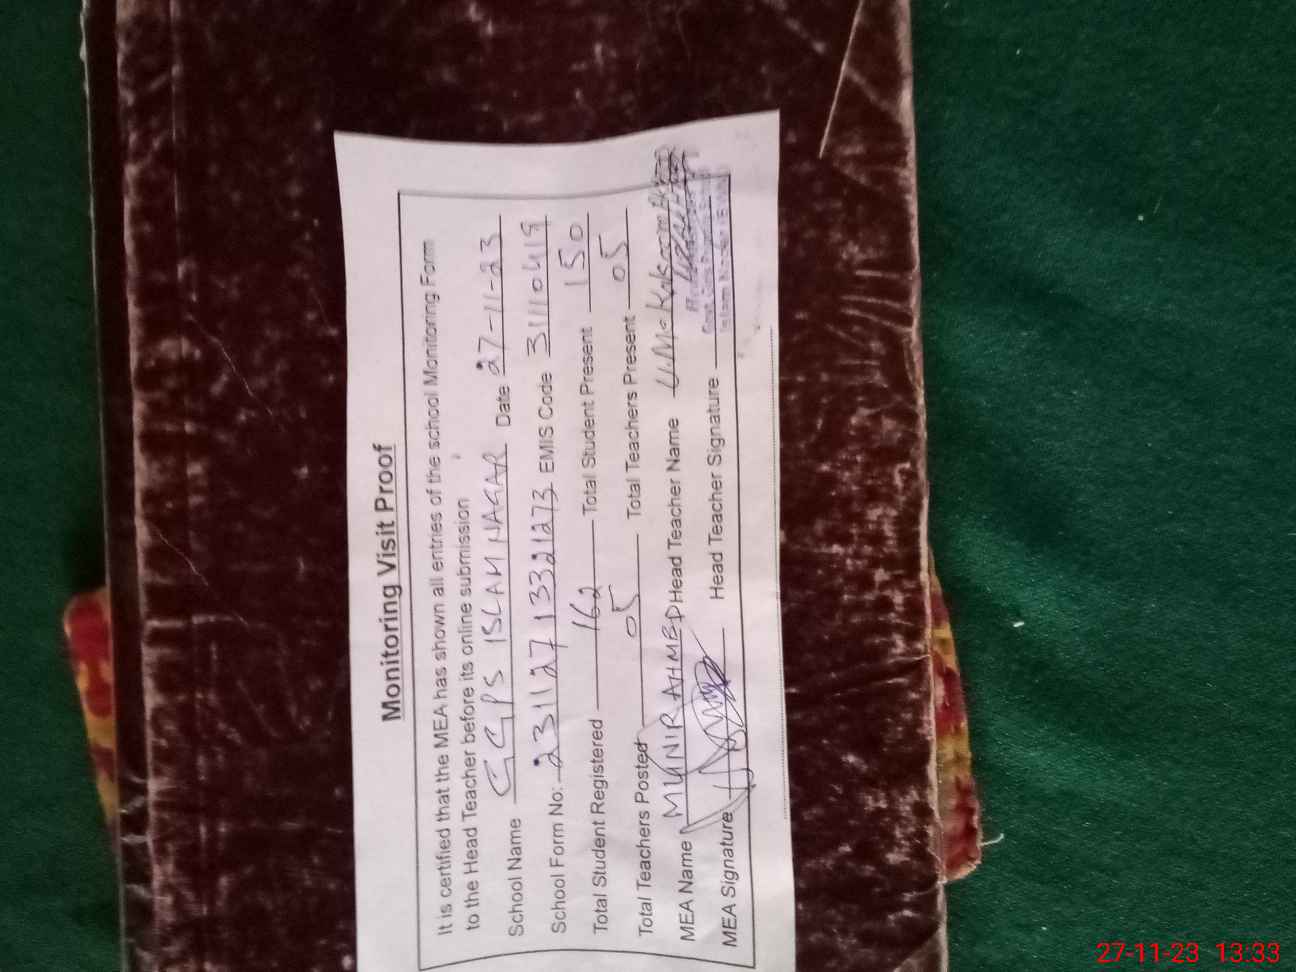 Monitoring Visit Proof
It is certified that the MEA has shown all entries of the school Monitoring Form
to the Head Teacher before its online submission
School Name GGPS ISLAM NAGAR Date 27-11-23
School Form No: 23112713321273 EMIS Code 31110419
Total Student Registered 162 Total Student Present 150
Total Teachers Posted 05 Total Teachers Present 05
MEA Name MUNIR AHMED Head Teacher Name
MEA Signature Head Teacher Signature
27-11-23 13:33